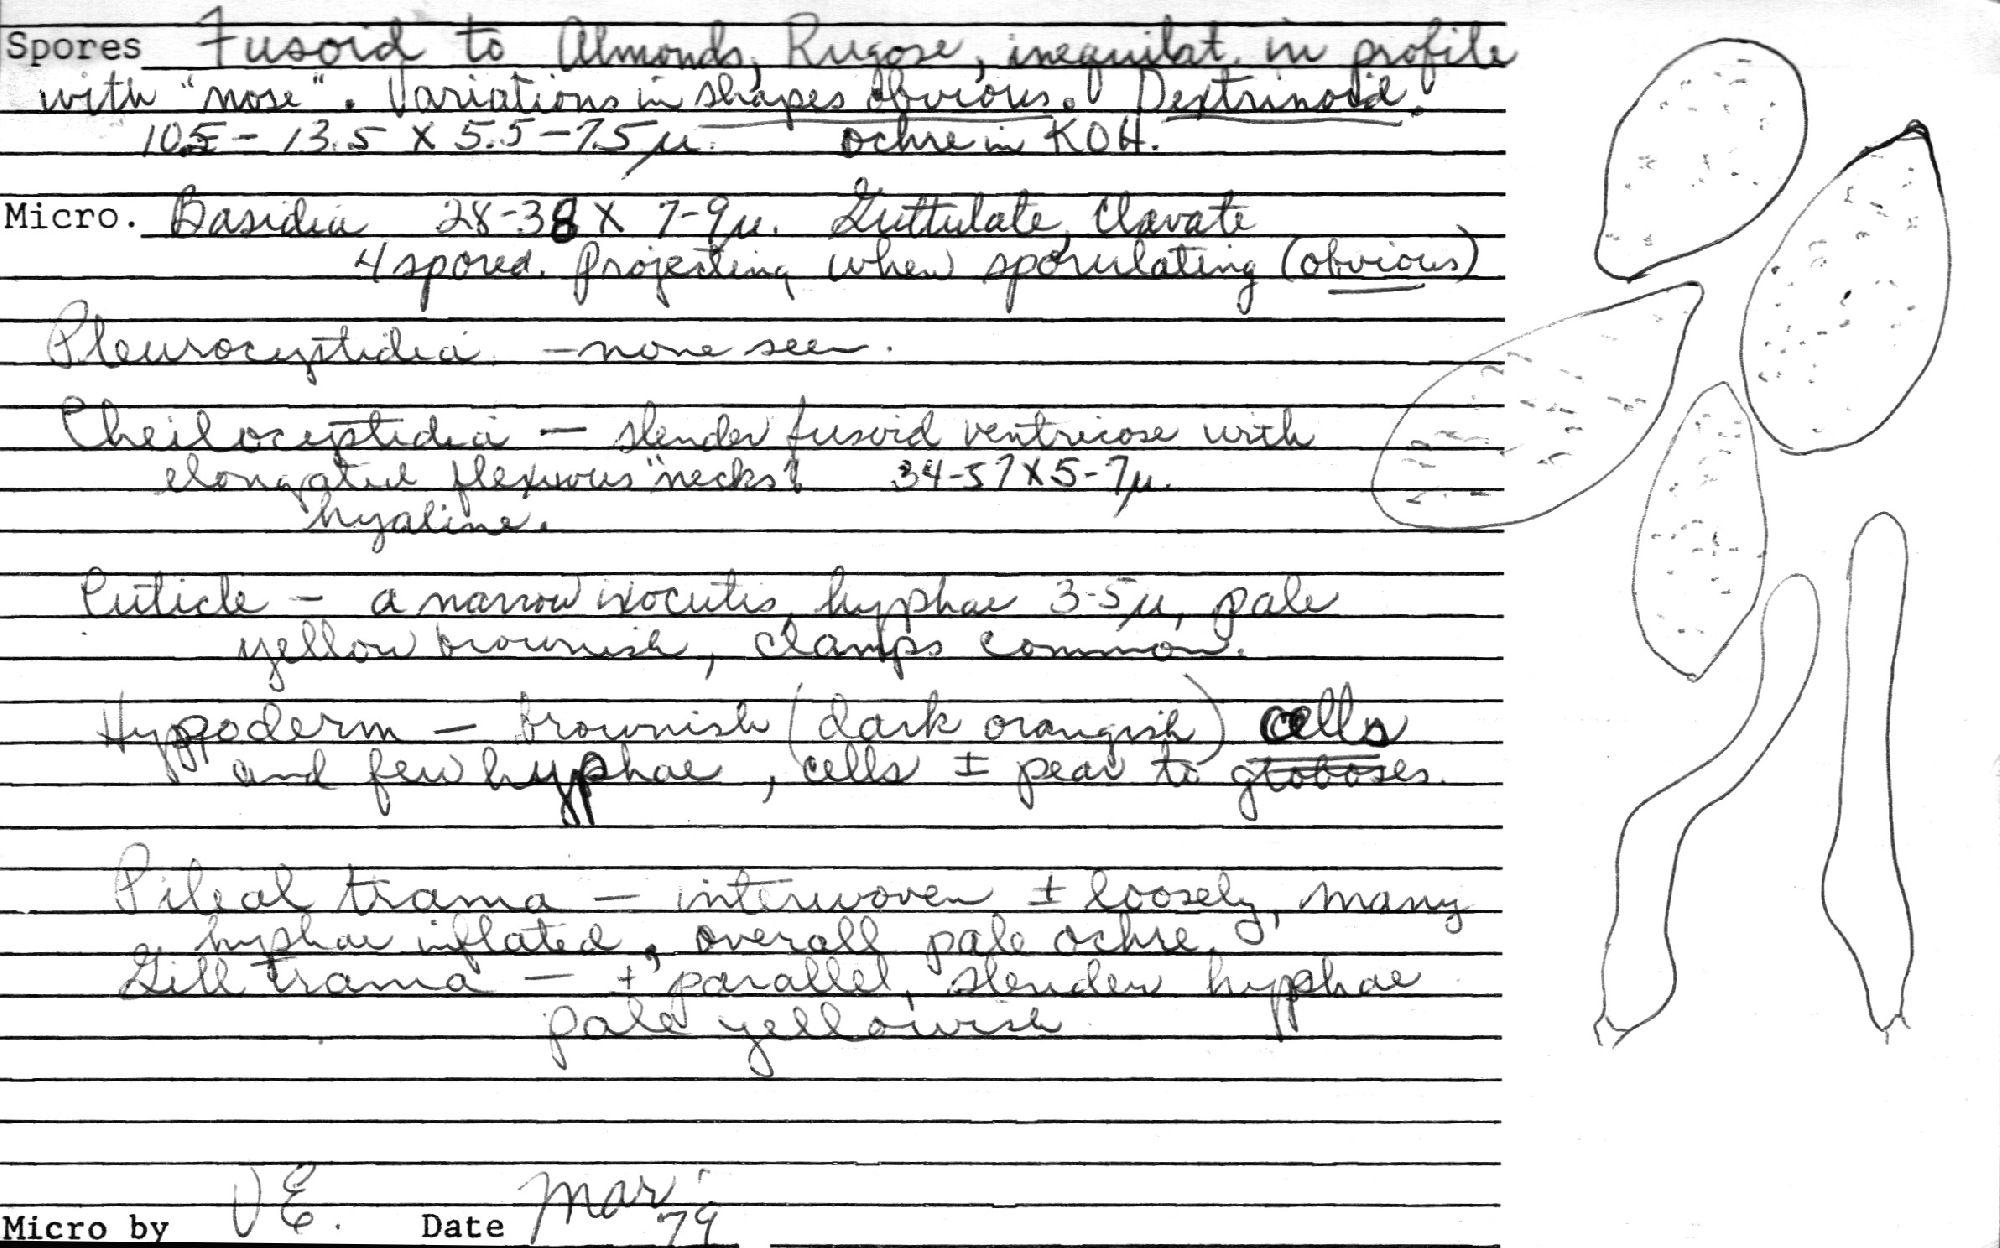 Spores Fusoid to Almonds, Rugose, inequilat. in profile
with "nose". Variations in shapes obvious. Dextrinoid.
10.5 - 13.5 X 5.5 - 7.5 µ. ochre in KOH.
Micro. Basidia 28-38 X 7-9µ. Guttulate, Clavate
4 spored. Projecting when sporulating (obvious)
Pleurocystidia - none seen.
Cheilocystidia — slender fusoid ventricose with
elongated flexuous "necks". 34-57 X 5-7µ.
hyaline.
Cuticle - a narrow ixocutis, hyphae 3-5µ, pale
yellow brownish, clamps common.
Hypoderm - brownish (dark orangish) cells
and few hyphae, cells ± pear to globoses.
Pileal trama — interwoven ± loosely, many
hyphae inflated, overall pale ochre.
Gill trama — ± parallel, slender hyphae
pale yellowish
Micro by VE. Date Mar'
79